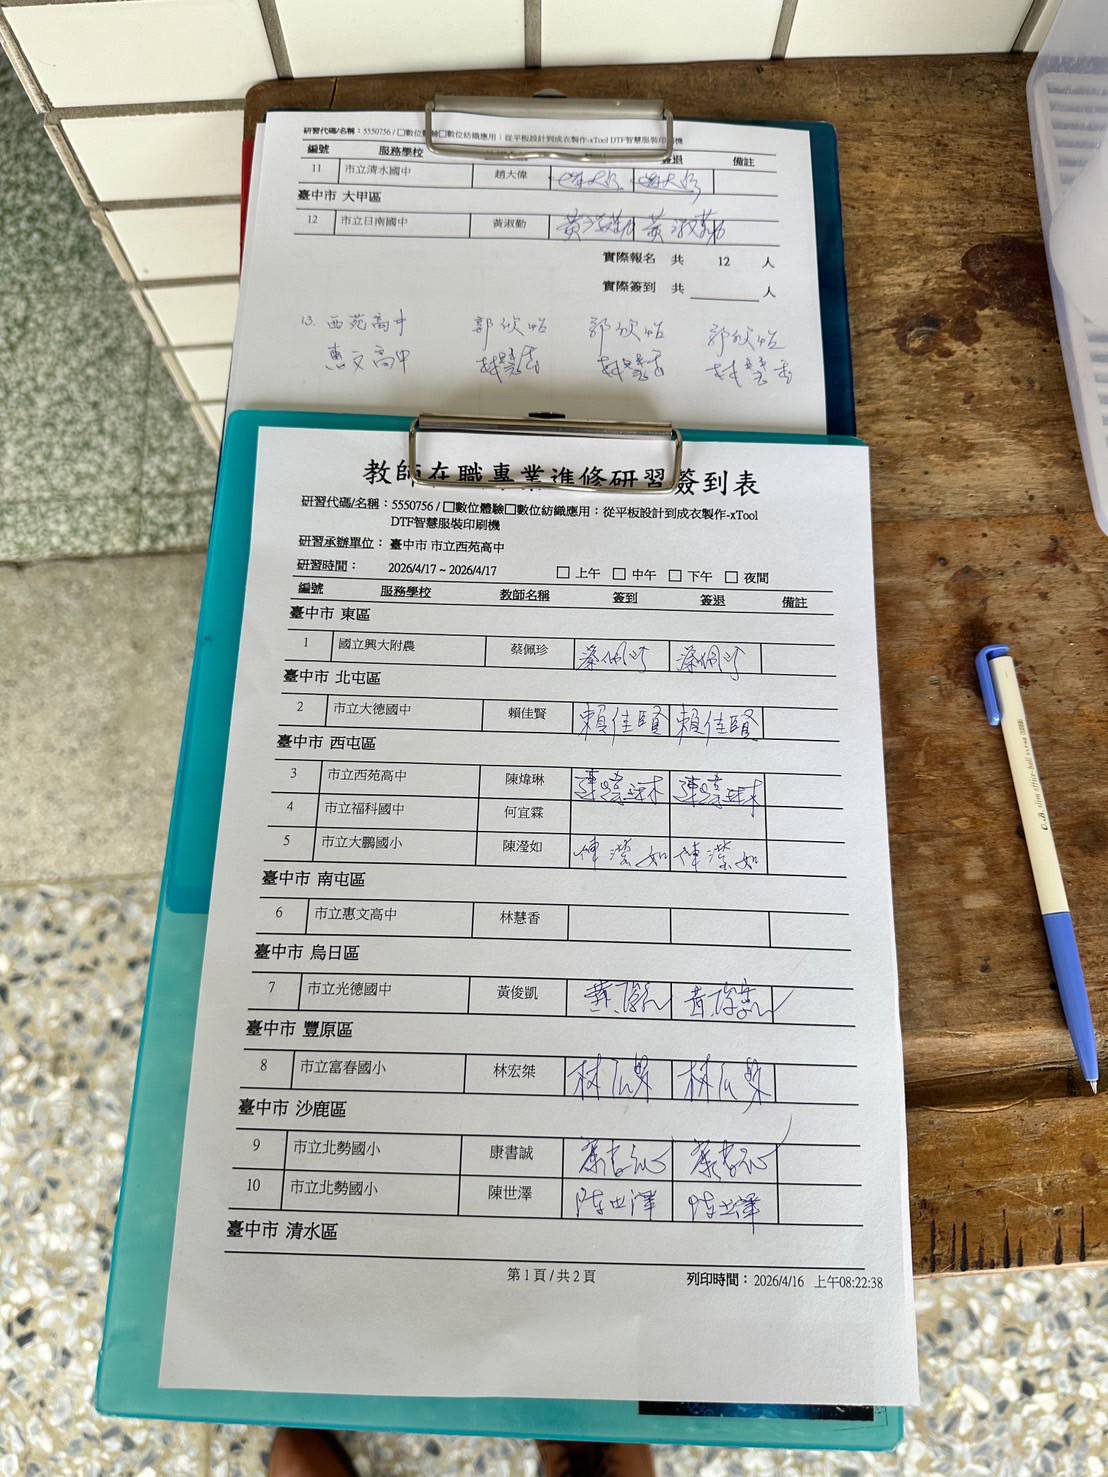 研習代碼/名稱：5550756 / □數位體驗□數位紡織應用：從平板設計到成衣製作-xTool DTF智慧服裝印刷機
編號 服務學校 簽退 備註
11 市立清水國中 趙大偉
臺中市 大甲區
12 市立日南國中 黃淑勤 黃淑勤 黃淑勤
實際報名 共 12 人
實際簽到 共 人
13. 西苑高中 郭欣怡 郭欣怡 郭欣怡
惠文高中 林慧香 林慧香 林慧香
教師在職專業進修研習簽到表
研習代碼/名稱：5550756 / □數位體驗□數位紡織應用：從平板設計到成衣製作-xTool
DTF智慧服裝印刷機
研習承辦單位： 臺中市 市立西苑高中
研習時間： 2026/4/17 ~ 2026/4/17 □ 上午 □ 中午 □ 下午 □ 夜間
編號 服務學校 教師名稱 簽到 簽退 備註
臺中市 東區
1 國立興大附農 蔡佩珍 蔡佩珍 蔡佩珍
臺中市 北屯區
2 市立大德國中 賴佳賢 賴佳賢 賴佳賢
臺中市 西屯區
3 市立西苑高中 陳煒琳
4 市立福科國中 何宜霖
5 市立大鵬國小 陳瀅如 陳瀅如 陳瀅如
臺中市 南屯區
6 市立惠文高中 林慧香
臺中市 烏日區
7 市立光德國中 黃俊凱 黃俊凱 黃俊凱
臺中市 豐原區
8 市立富春國小 林宏桀 林宏桀 林宏桀
臺中市 沙鹿區
9 市立北勢國小 康書誠 康書誠 康書誠
10 市立北勢國小 陳世澤 陳世澤 陳世澤
臺中市 清水區
第 1 頁 / 共 2 頁 列印時間：2026/4/16 上午08:22:38